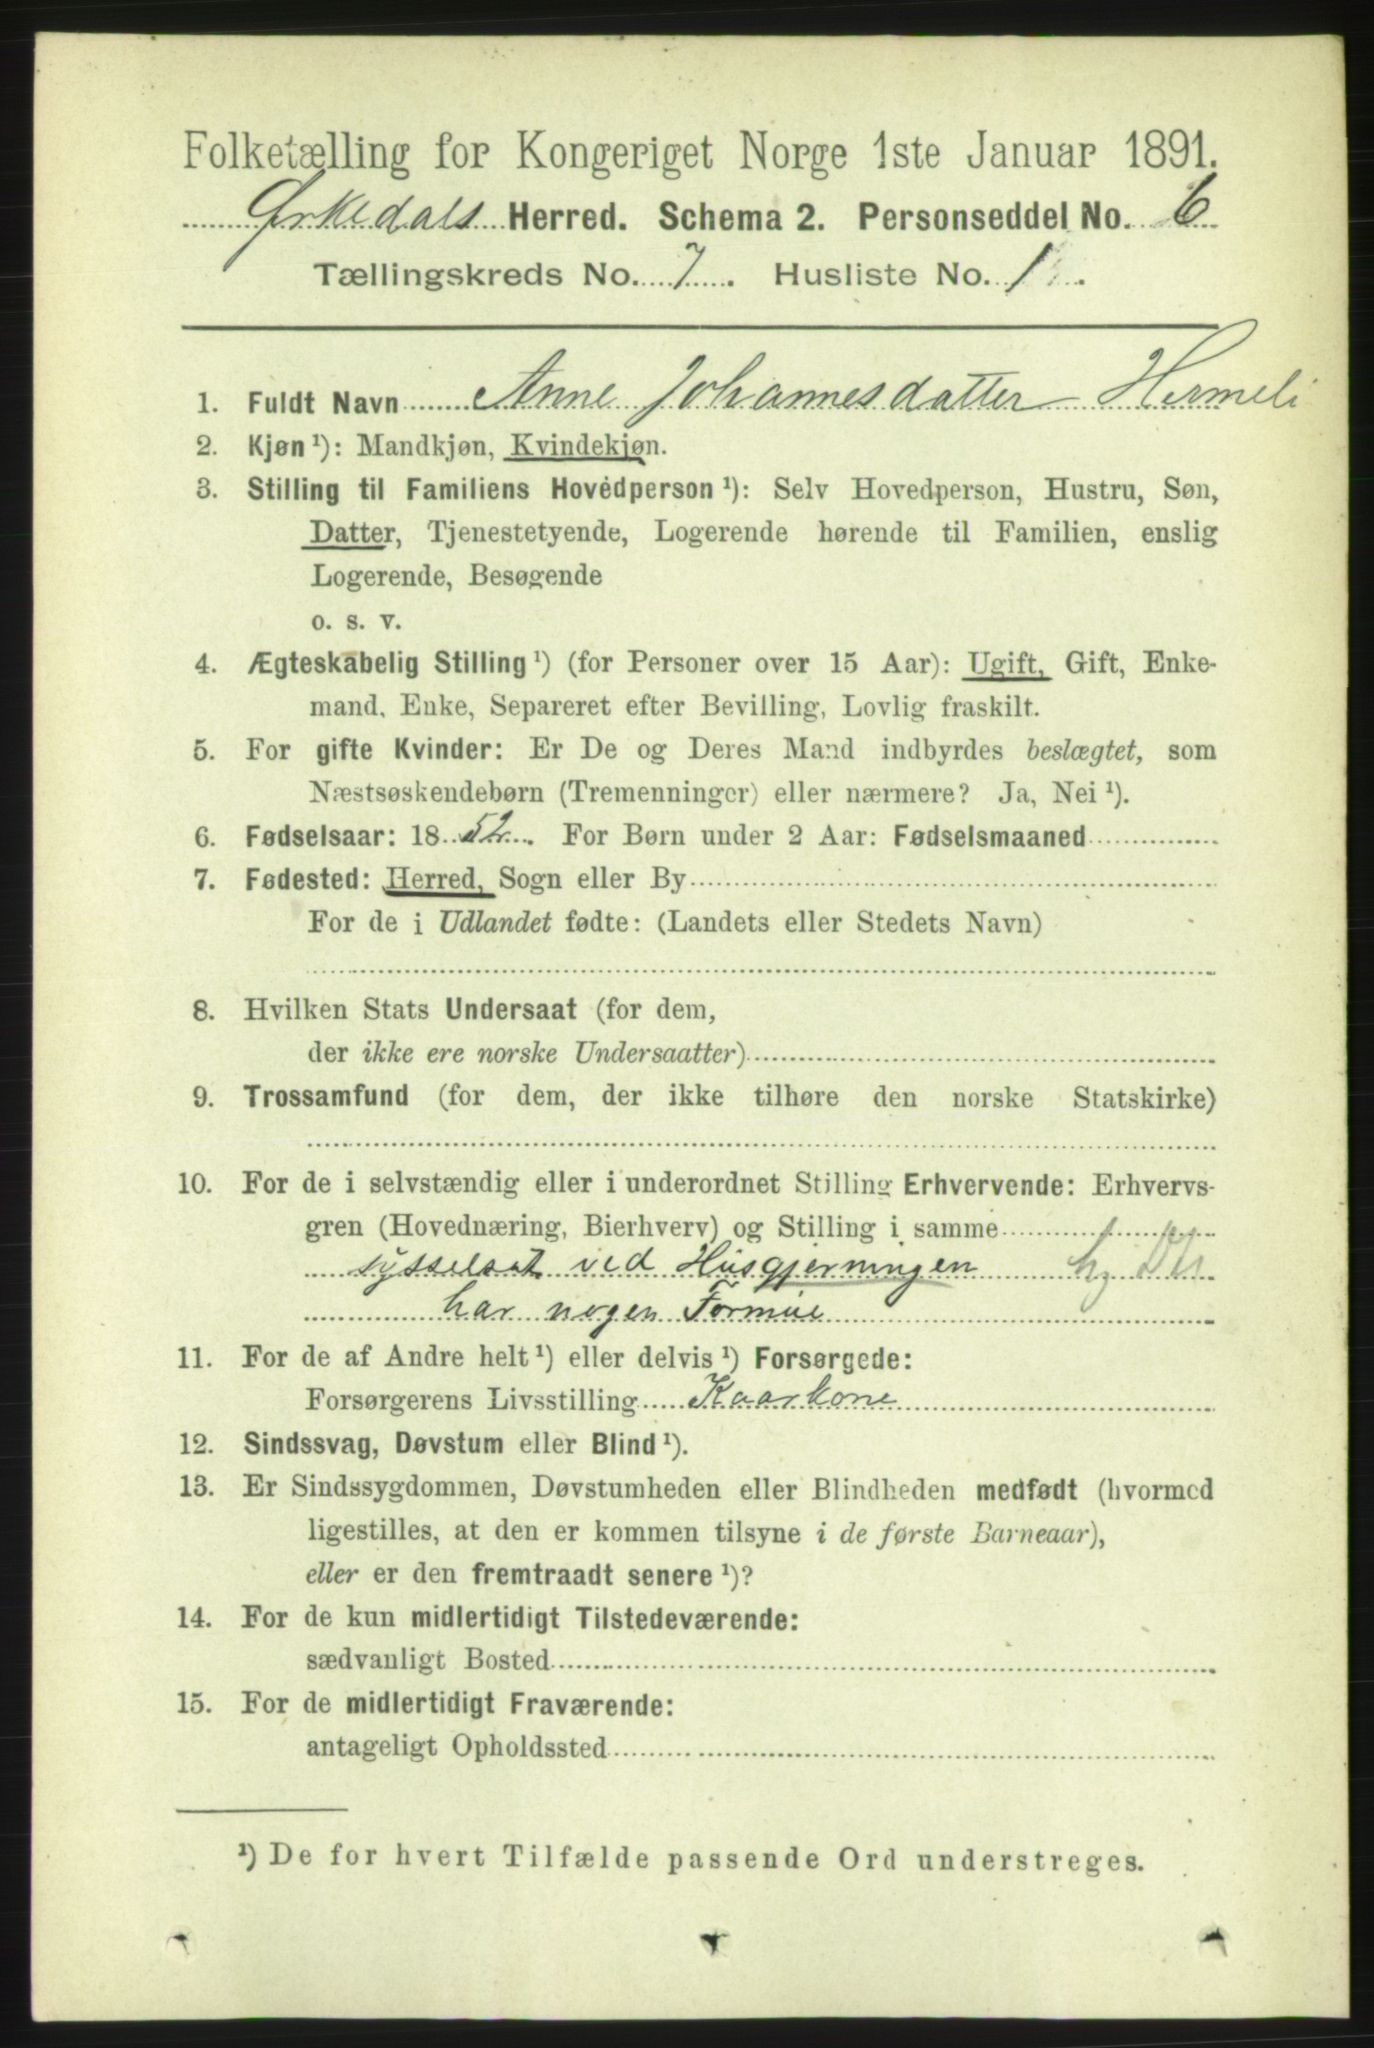 Folketælling for Kongeriget Norge 1ste Januar 1891.
Ørkedals Herred. Schema 2. Personseddel No. 6
Tællingskreds No. 7. Husliste No. 1.
1. Fuldt Navn Anne Johannesdatter Hermeli
2. Kjøn¹): Mandkjøn, Kvindekjøn.
3. Stilling til Familiens Hovedperson¹): Selv Hovedperson, Hustru, Søn,
Datter, Tjenestetyende, Logerende hørende til Familien, enslig
Logerende, Besøgende
o. s. v.
4. Ægteskabelig Stilling¹) (for Personer over 15 Aar): Ugift, Gift, Enke-
mand, Enke, Separeret efter Bevilling, Lovlig fraskilt.
5. For gifte Kvinder: Er De og Deres Mand indbyrdes beslægtet, som
Næstsøskendebørn (Tremenninger) eller nærmere? Ja, Nei¹).
6. Fødselsaar: 1852. For Børn under 2 Aar: Fødselsmaaned
7. Fødested: Herred, Sogn eller By
For de i Udlandet fødte: (Landets eller Stedets Navn)
8. Hvilken Stats Undersaat (for dem,
der ikke ere norske Undersaatter)
9. Trossamfund (for dem, der ikke tilhøre den norske Statskirke)
10. For de i selvstændig eller i underordnet Stilling Erhvervende: Erhvervs-
gren (Hovednæring, Bierhverv) og Stilling i samme
sysselsat ved Husgjerningen
har nogen Formue
11. For de af Andre helt¹) eller delvis¹) Forsørgede:
Forsørgerens Livsstilling Kaarkone
12. Sindssvag, Døvstum eller Blind¹).
13. Er Sindssygdommen, Døvstumheden eller Blindheden medfødt (hvormed
ligestilles, at den er kommen tilsyne i de første Barneaar),
eller er den fremtraadt senere¹)?
14. For de kun midlertidigt Tilstedeværende:
sædvanligt Bosted
15. For de midlertidigt Fraværende:
antageligt Opholdssted
¹) De for hvert Tilfælde passende Ord understreges.